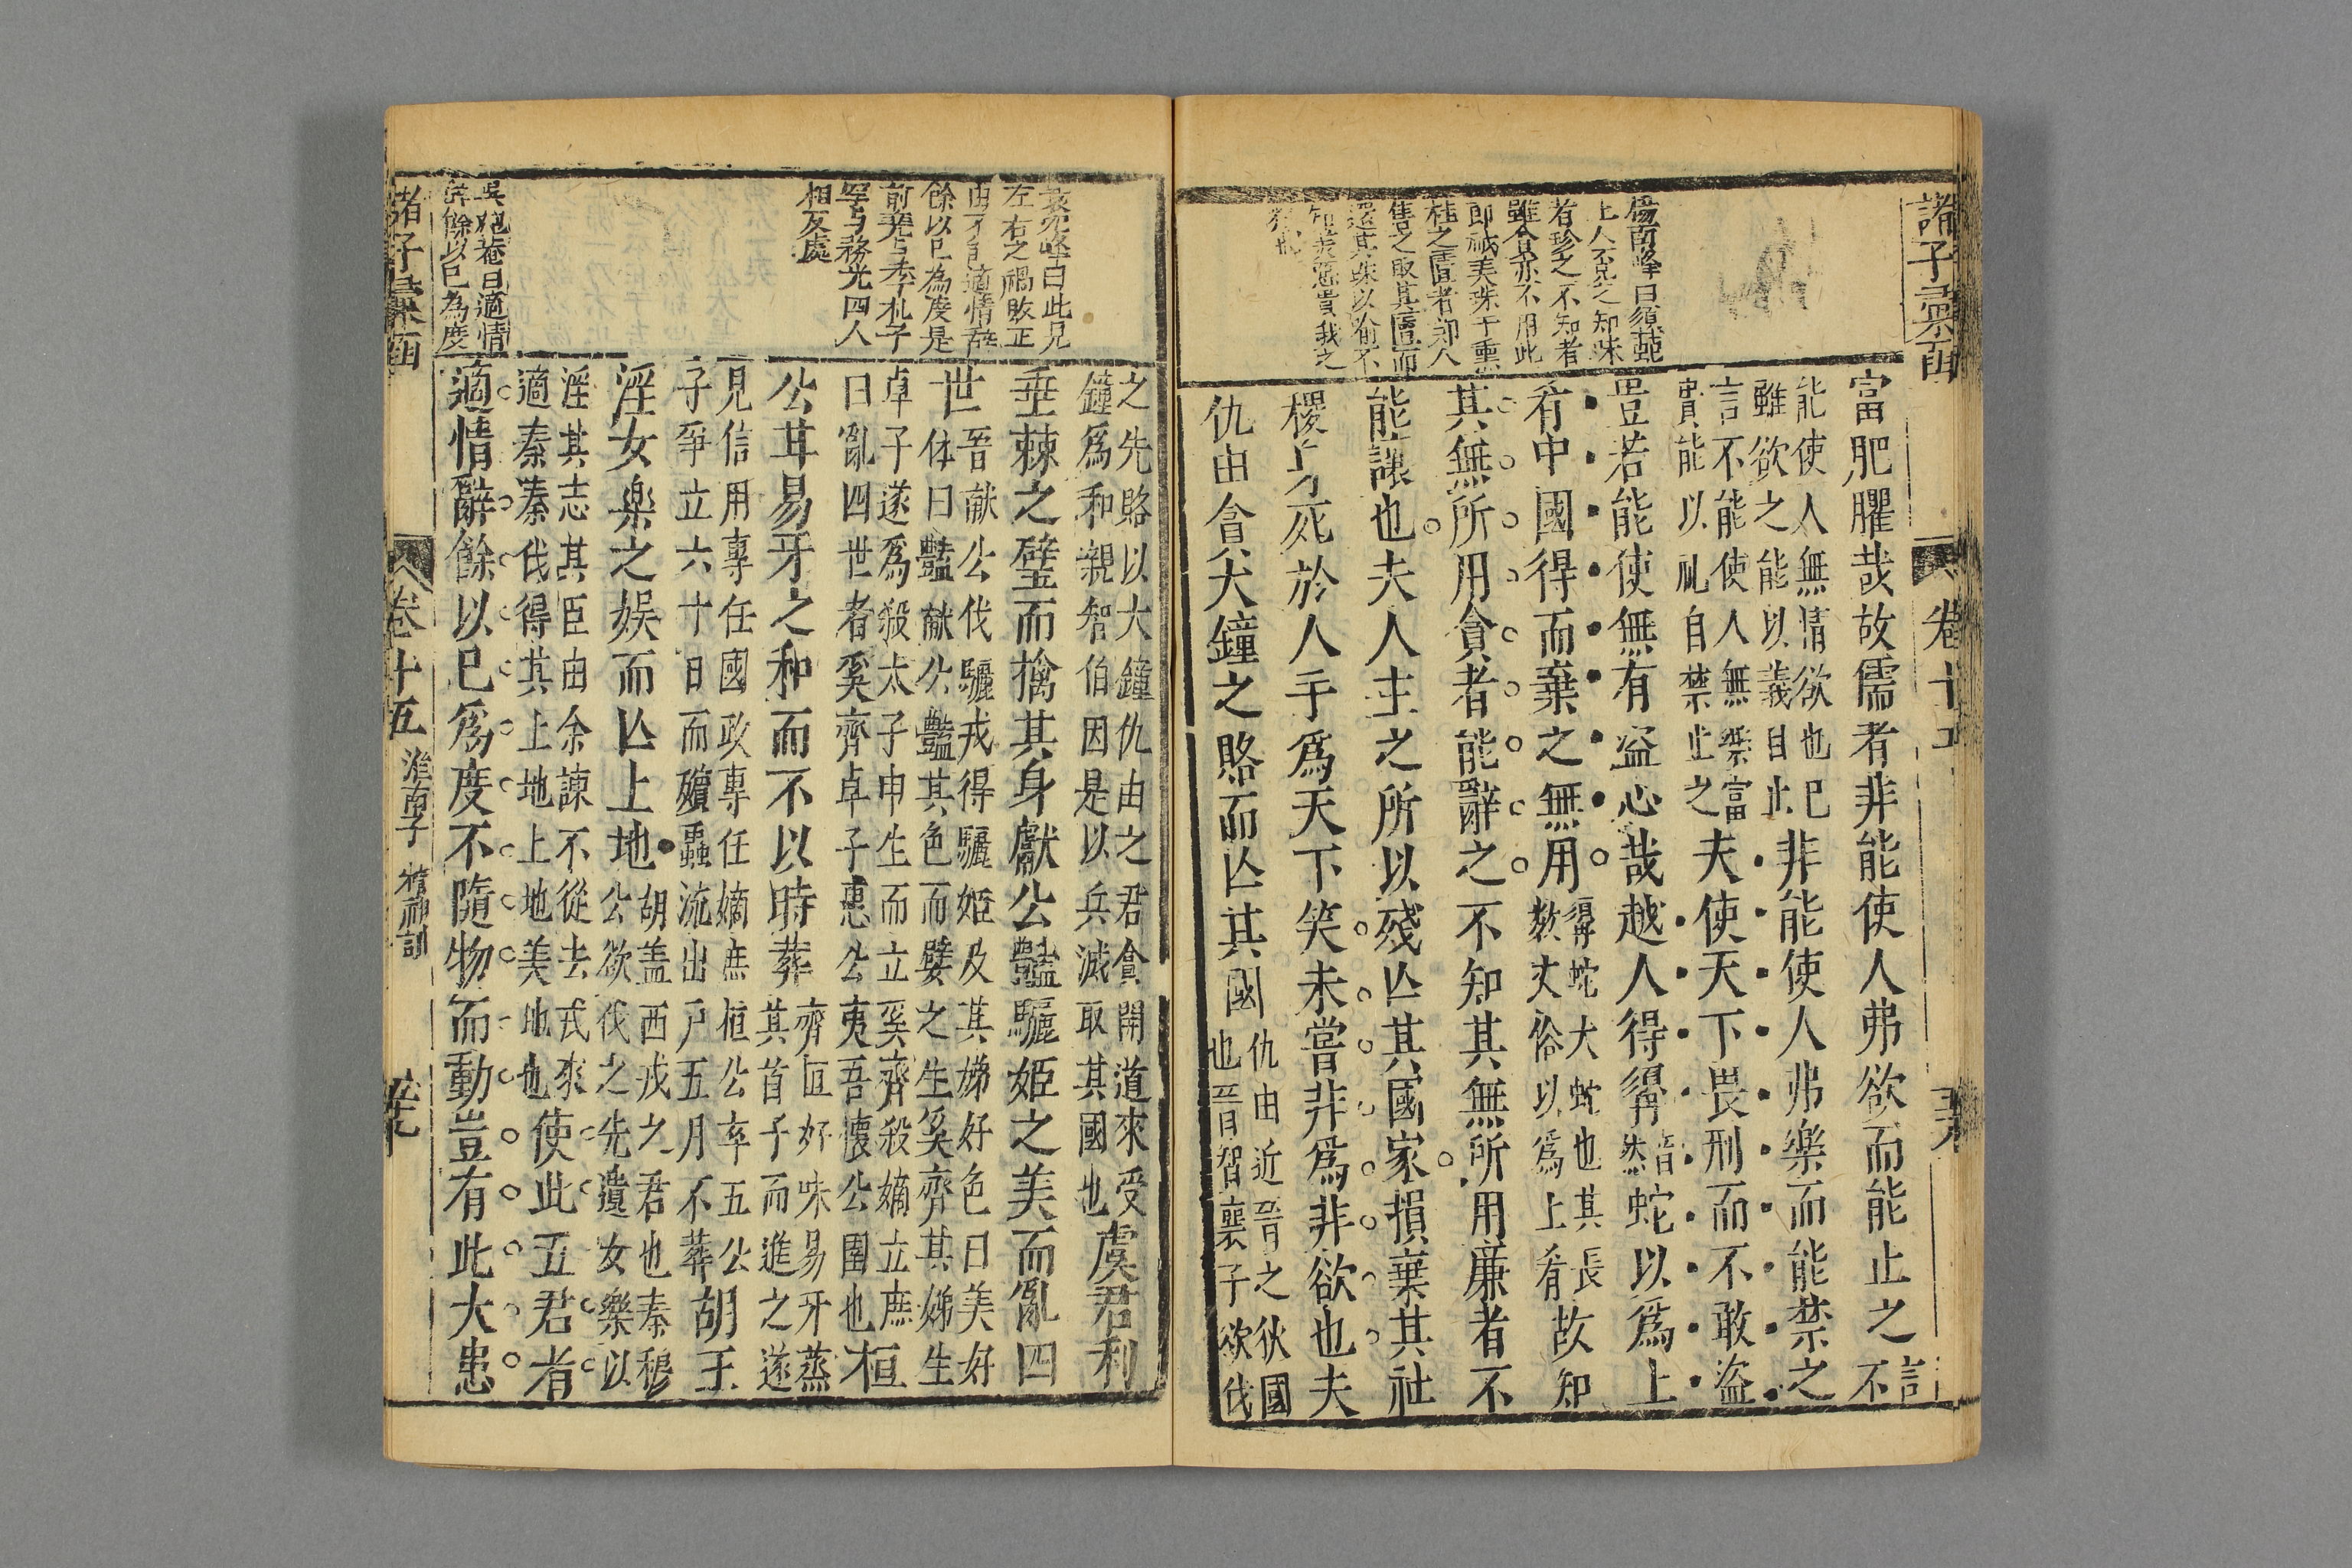 諸子彙函
卷十五
楊南峰曰須蛇
上人不足之知味
者珍之不知者
雖貪亦不用此
即祇美珠于熏
桂之匱者鄭人
售之取其匱而
還其珠以喻不
富肥臞哉故儒者非能使人弗欲而能止之言不
能使人無情欲也巳
雖欲之能以義自止非能使人弗樂而能禁之
言不能使人無禁富
貴能以礼自禁止之夫使天下畏刑而不敢盗
豈若能使無有盗心哉越人得髯音然蛇以爲上
肴中國得而棄之無用髯蛇大蛇也其長
數丈俗以爲上肴故知
其無所用貪者能辭之不知其無所用廉者不
能讓也夫人主之所以殘亾其國家損棄其社
稷身死於人手爲天下笑未嘗非爲非欲也夫
仇由貪大鐘之賂而亾其國仇由近晉之狄國
也晉智襄子欲伐
之先賂以大鐘仇由之君貪開道來受
鐘爲和親智伯因是以兵滅取其國也虞君利
垂棘之璧而擒其身獻公豔驪姬之美而亂四
世晉献公伐驪戎得驪姬及其娣好色曰美好
体曰豔献公豔其色而嬖之生奚齊其娣生
卓子遂爲殺太子申生而立奚齊殺嫡立庶
曰亂四世者奚齊卓子惠公夷吾懷公圉也桓
公甘易牙之和而不以時葬齊桓好味易牙蒸
其首子而進之遂
見信用專任國政專任嫡庶桓公卒五公
子爭立六十日而殯蟲流出户五月不葬胡王
淫女樂之娱而亾上地胡盖西戎之君也秦穆
公欲伐之先遺女樂以
淫其志其臣由余諫不從去戎來
適秦秦伐得其上地上地美地也使此五君者
適情辭餘以巳爲度不隨物而動豈有此大患
袁宛峰曰此見
左右之禍敗正
由不能適情辭
餘以巳為度是
前堯与季札子
罕与務光四人
相反處
吳匏菴曰適情
辭餘以巳為度
諸子彙函
卷十五
淮南子
精神訓